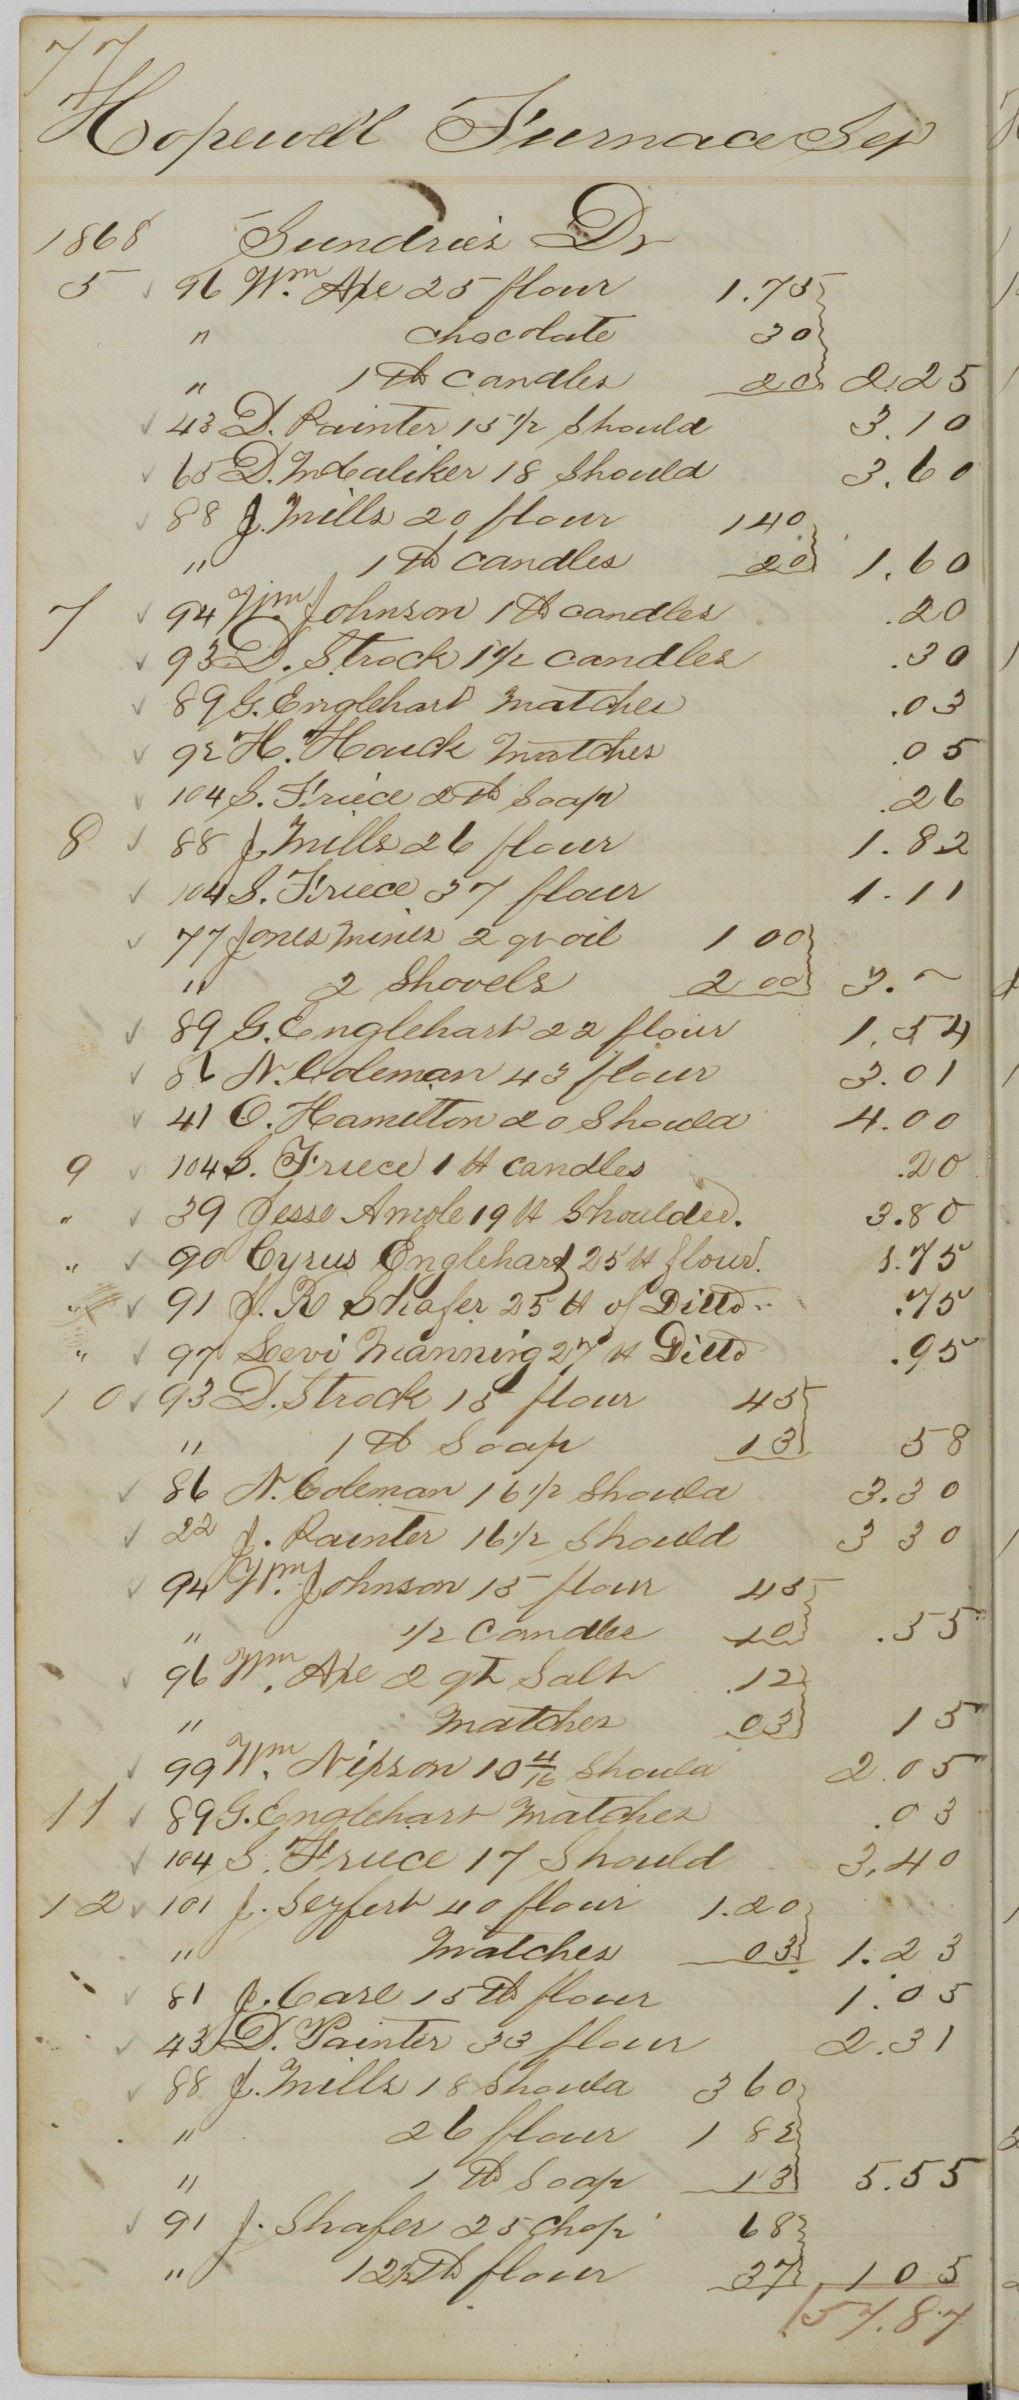 77
Hopewell Furnace Sep
1868 Sundries Dr
5 96 Wm. Axe 25 flour 1.75
" chocolate 30
" 1 lb candles 20 2.25
43 D. Painter 15 1/2 Should 3.10
65 D. McCaliker 18 Should 3.60
88 J. Mills 20 flour 140
" 1 lb candles 20 1.60
7 94 Wm. Johnson 1 lb candles .20
93 D. Strock 1 1/2 candles .30
89 G. Englehart matches .03
92 H. Houck matches .05
104 S. Friece 2 lb Soap .26
8 88 J. Mills 26 flour 1.82
104 S. Friece 37 flour 1.11
77 Jones Mines 2 qr oil 1 00
" 2 Shovels 2 00 3. ~
89 G. Englehart 22 flour 1.54
86 N. Coleman 43 flour 3.01
41 O. Hamilton 20 Should 4.00
9 104 S. Friece 1 lb candles .20
" 39 Jesse Amole 19 lb Shoulder. 3.80
" 90 Cyrus Englehart 25 lb flour. 1.75
" 91 J. R Shafer 25 lb of Ditto .75
" 97 Levi Manning 27 lb Ditto .95
10 93 D. Strock 15 flour 45
" 1 lb Soap 13 58
86 N. Coleman 16 1/2 Should 3.30
22 J. Painter 16 1/2 Should 3 30
94 Wm. Johnson 15 flour 45
" 1/2 Candles 10 .55
96 Wm. Axe 2 qts Salt .12
" Matches 03 15
99 Wm. Nipson 10 4/16 Should 2.05
11 89 G. Englehart Matches .03
104 S. Friece 17 Should 3.40
12 101 J. Seyfert 40 flour 1.20
" Matches 03 1.23
81 J. Care 15 lb flour 1.05
43 D. Painter 33 flour 2.31
88 J. Mills 18 Should 3 60
" 26 flour 1 82
" 1 lb Soap 13 5.55
91 J. Shafer 25 Chop 68
" 12 1/2 lb flour 37 1 05
57.87